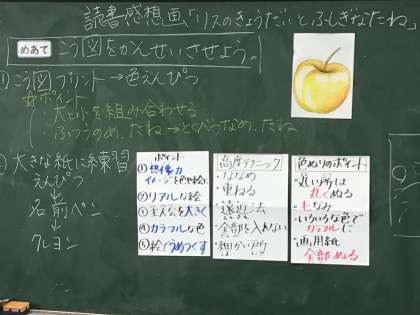 読書感想画「リスのきょうだいとふしぎなたね」
めあて こう図をかんせいさせよう。
①こう図プリント→色えんぴつ
☆ポイント
・大と小を組み合わせる
・ふつうのめ、たね→とくべつなめ、たね
②大きな紙に練習
えんぴつ
↓
名前ペン
↓
クレヨン
ポイント
①想像力
イメージを色や絵に
②リアルな絵
③主人公を大きく
④カラフルな色
⑤絵でうめつくす
高度テクニック
・ななめ
・重ねる
・遠近法
・全部を入れない
・細かい所
色ぬりのポイント
・丸い所は
丸くぬる
・毛なみ
・いろいろな色で
カラフルに
・画用紙
全部ぬる